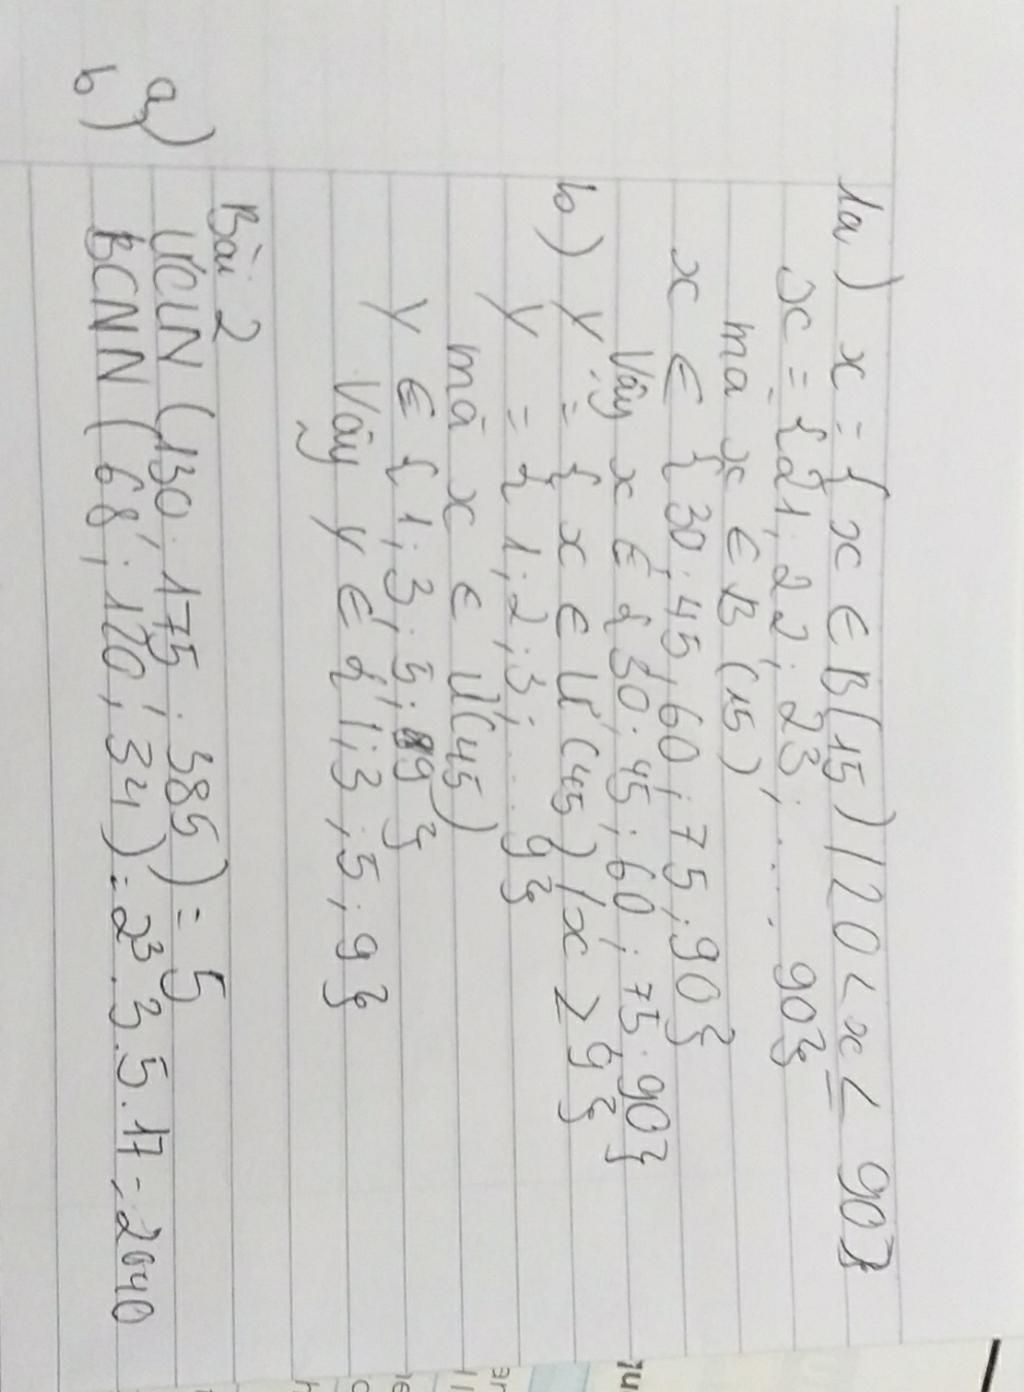 1a) x = { x ∈ B(15) / 20 < x ≤ 90}
x = {21; 22; 23; .... 90}
mà x ∈ B(15)
x ∈ {30; 45; 60; 75; 90}
Vậy x ∈ {30; 45; 60; 75; 90}
b) Y = { x ∈ Ư(45) / x ≥ 9}
Y = {1; 2; 3; ... 9}
mà x ∈ Ư(45)
Y ∈ {1; 3; 5; 9}
Vậy Y ∈ {1; 3; 5; 9}
Bài 2
a) ƯCLN (130; 175; 385) = 5
b) BCNN (68; 120; 34) = 2³. 3. 5. 17 = 2040